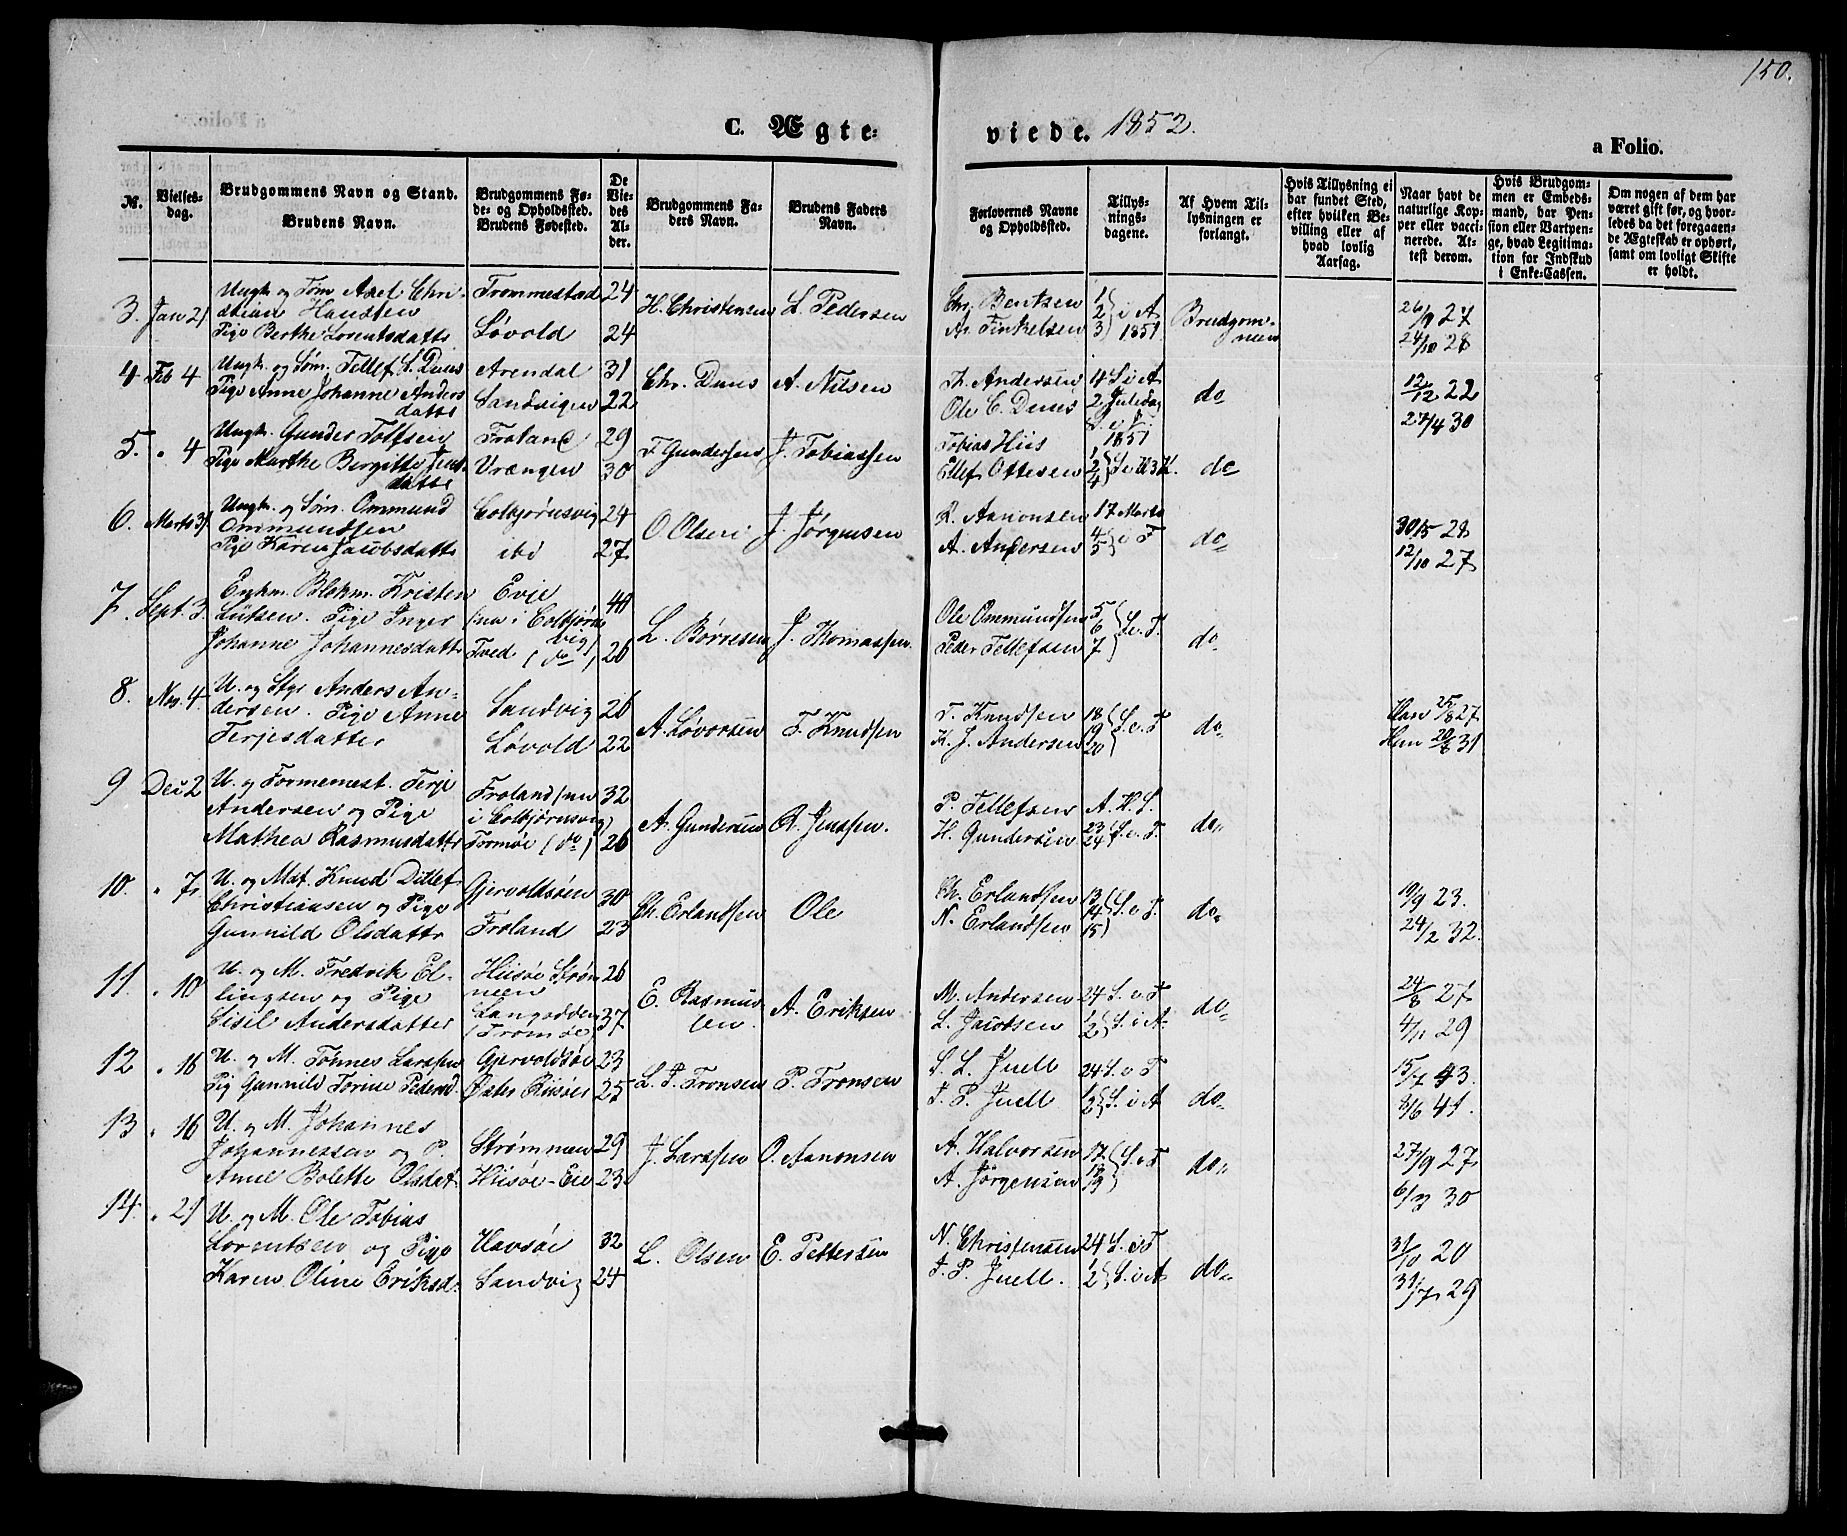 150.
C. Ægte-
viede. 1852.
a Folio.
№.
Vielses-
dag.
Brudgommens Navn og Stand.
Brudens Navn.
Brudgommens Fø-
de- og Opholdssted.
Brudens Fødested.
De
Vie-
des
Al-
der.
Brudgommens Fa-
ders Navn.
Brudens Faders
Navn.
Forlovernes Navne
og Opholdssted.
Tillys-
nings-
dagene.
Af Hvem Til-
lysningen er
forlangt.
Hvis Tillysning ei
har fundet Sted,
efter hvilken Be-
villing eller af
hvad lovlig
Aarsag.
Naar havt de
naturlige Kop-
per eller vacci-
nerede. At-
test derom.
Hvis Brudgom-
men er Embeds-
mand, har Pen-
sion eller Vartpen-
ge, hvad Legitima-
tion for Indskud
i Enke-Cassen.
Om nogen af dem har
været gift før, og hvor-
ledes da det foregaaen-
de Ægteskab er ophørt,
samt om lovligt Skifte
er holdt.
3. Jan 21
Ungk. og Søm. Axel Chri-
stian Hansen
Pige Berthe Lorentsdattr
Trommestad 24
Løvold 24
H. Christensen
L. Pedersen
Chr. Bentsen
Ar. Finkelsen
1
2 i A
3 1851
Brudgom-
men
26/9 27
24/10 28
4 Feb 4
Ungk. og Søm. Tellef S. Duus
Pige Anne Johanne Anders
datter
Arendal 31
Sandvigen 22
Chr. Duus
A. Nilsen
Th. Andersen
Ole C. Duus
4 S. i A
2 Juledag
1851
do
12/12 22
27/4 30
5. " 4
Ungk. Gunder Tolfsen
Pige Marthe Bergitte Jens
datter
Froland 29
Vrængen 30
T Gundersen
J. Tobiassen
Tobias Hiis
Ellef Ottesen
1
2
4
do
6. Marts 31
Ungk. og Søm. Ommund
Ommundsen
Pige Karen Jacobsdattr
Colbjørnsvig 24
ibi 27
O Olsen
J. Jørgensen
R. Aanonsen
A. Andersen
17 Marts
4
5 i F
do
30/5 28
12/10 27
7. Sept. 3
Enkm. Blokm. Kristen
Lutsen. Pige Inger
Johanne Johannesdattr
Evje 40
(nu i Colbjørns
vig)
Tved (do) 26
L. Børresen
J. Thomassen.
Ole Ommundsen
Peder Tellefsen
5
6 S. e. T.
7
do
8. Nov. 4
U. og Styr Anders An-
dersen. Pige Anne
Terjesdatter
Sandvig 26
Løvold 22
A. Løvorsen
T. Knudsen
T. Knudsen
K. J. Andersen
18
19 S. e. T
20
do
Han 25/8 27
Hun 20/6 31
9 Dec 2
U. og Tømmermest. Terje
Andersen og Pige
Mathea Rasmusdattr
Froland (nu 32
i Colbjørnsvig)
Tromøe (do) 26
A. Gundersen
R. Jensen.
P. Tellefsen
H. Gundersen
A. H. S.
23
24 S. e. T
do
10. " 7
U. og Mat. Knud Ditlef
Christiansen og Pige
Gunnild Olsdattr
Gjervoldsøen 30
Froland 23
Ch. Erlandsen
Ole
Ch. Erlandsen
N. Erlandsen
13
14 S. e T.
15
do
19/9 23.
24/2 32.
11. " 10
U. og M. Fredrik El-
lingsen og Pige
Sisel Andersdatter
Hiisøe Strøm 26
meen
Langodden 37
(Tromøe)
E. Rasmus-
sen.
A. Eriksen
M. Andersen
L. Jacobsen
24 S. e T
1
2 S. i A
do
24/8 27
4/11 29
12 " 16
U. og M. Tønnes Larssen
Pig Gunnild Torine Pedersd.
Gjervoldsøe 23
Øster Riisøer 25
L. T. Tronsen
P. Tronsen
S. L. Juell
T. P. Juell
24 S. e T
1
2 S. i A
do
15/7 43.
8/6 41.
13 " 16
U. og M. Johannes
Johannessen og P.
Anne Bolette Olsdat.
Strømmen 29
Hiisøe-Eie 23
J. Larssen
O. Aanonsen
A. Halvorsen
A. Jørgensen
17
18 S. e T
19
do
27/9 27
6/3 30
14. " 21
U. og M. Ole Tobias
Lorentsen og Pige
Karen Oline Eriksd.
Havsøe 32
Sandvig 24
L. Olsen
E. Pettersen
N. Christensen
T. P. Juell.
24 S. e T
1
2 S. i A
do
31/10 20
31/7 29